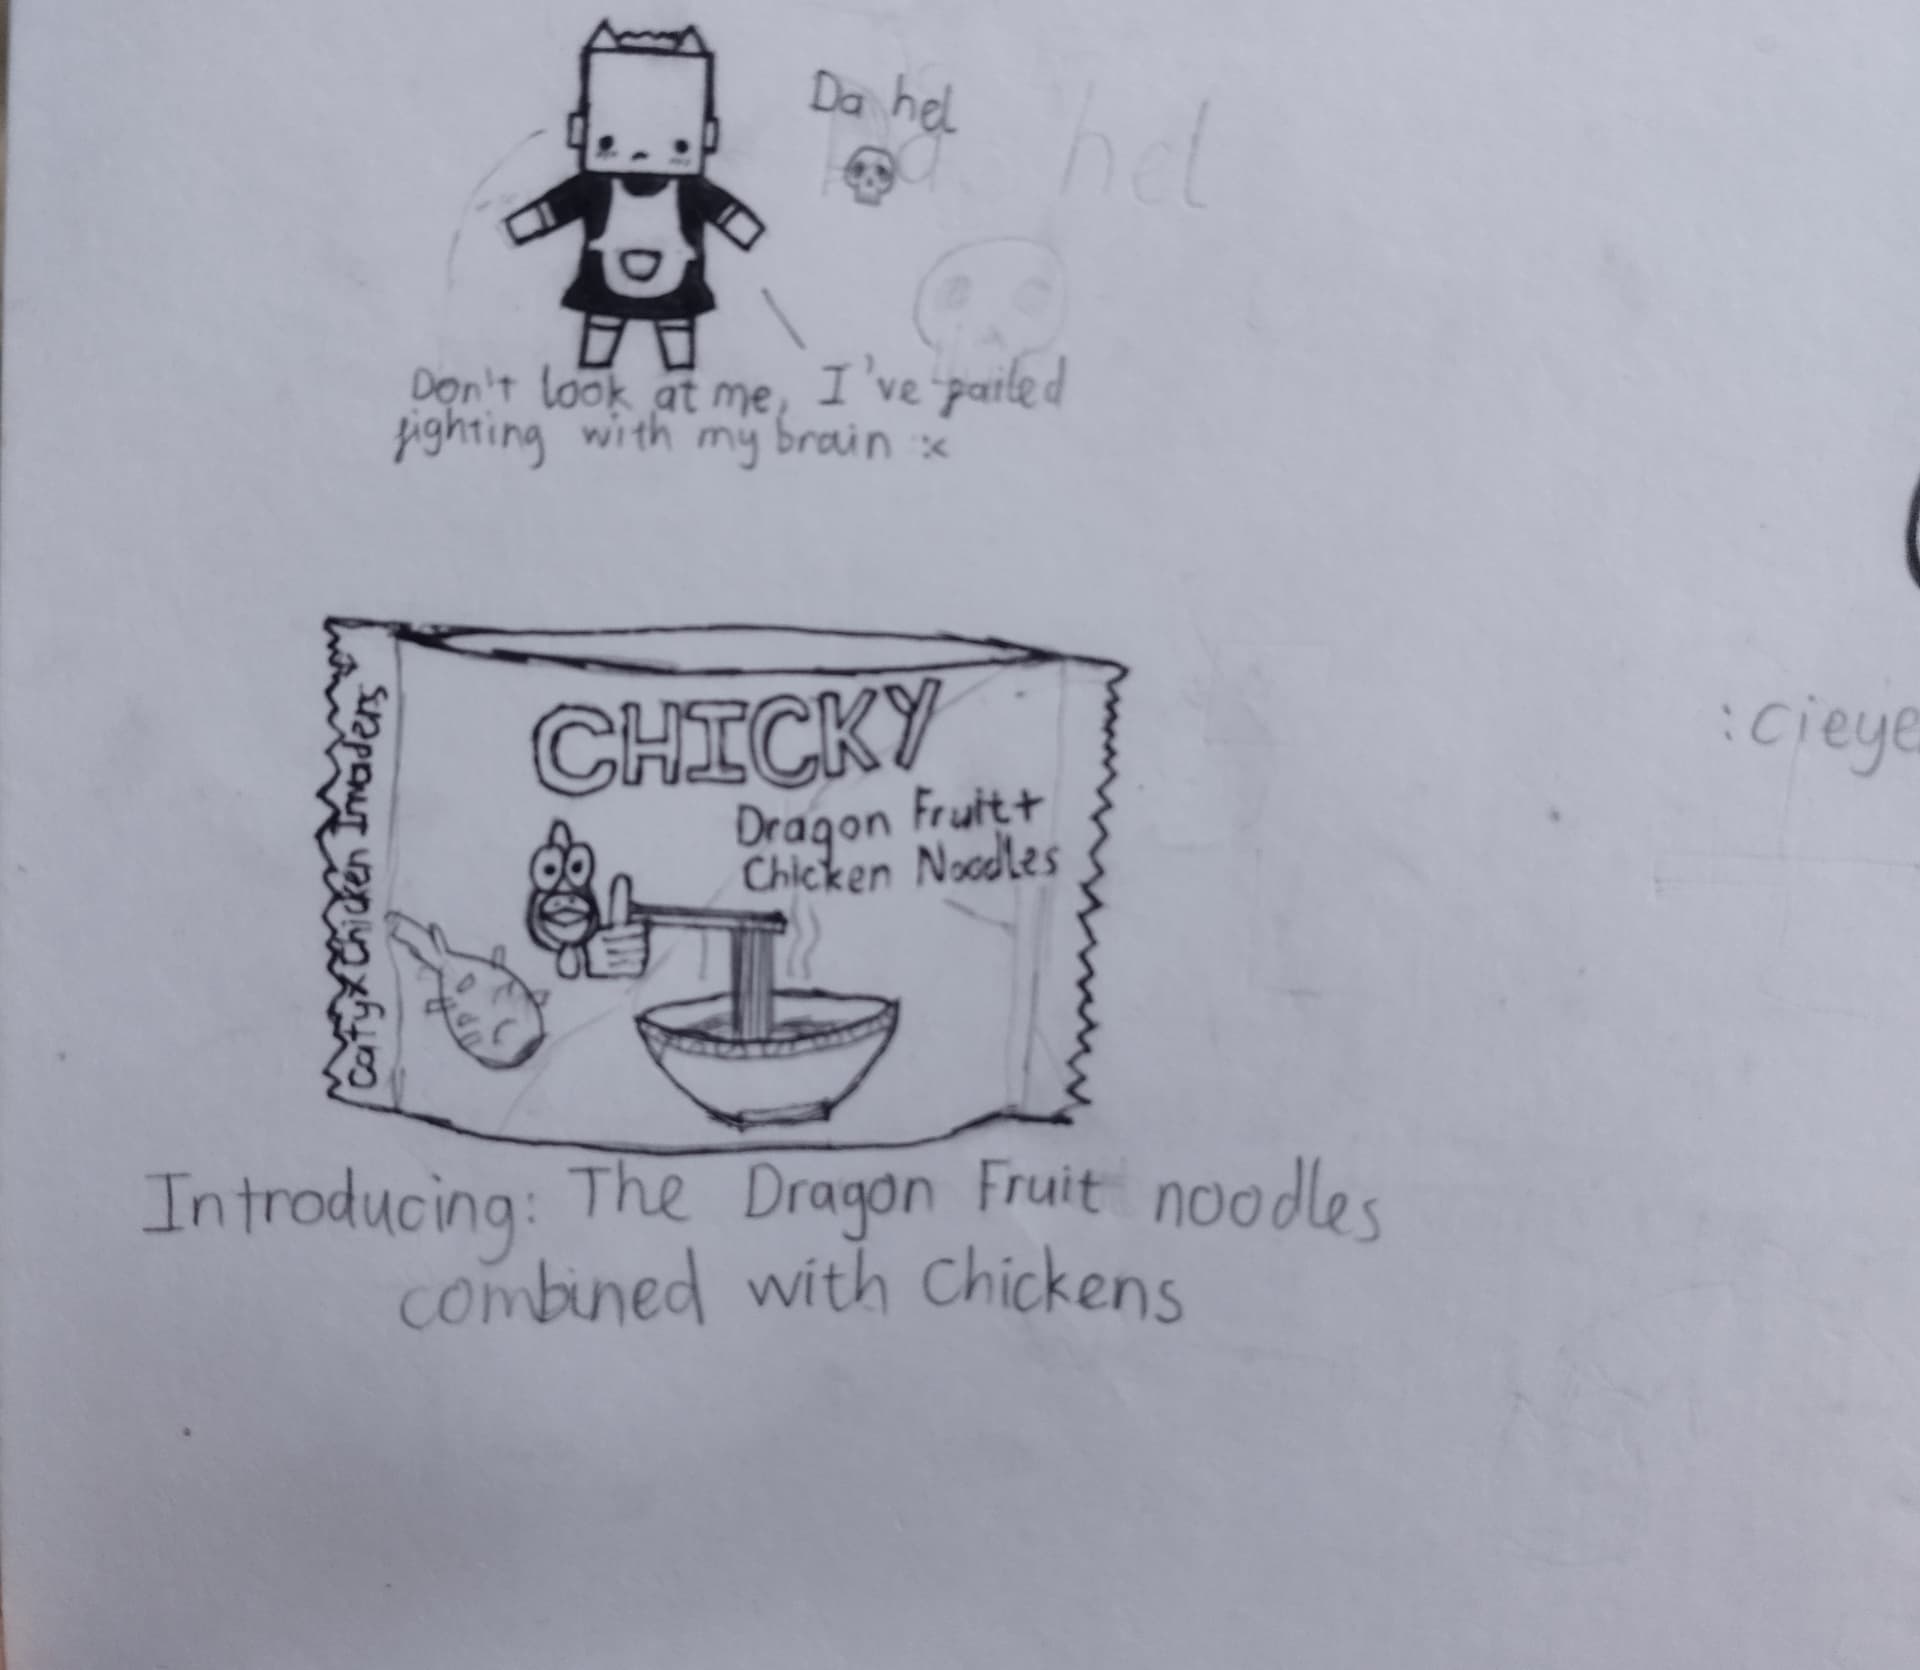 Da hel
Da hel
Don't look at me, I've failed
fighting with my brain :<
CHICKY
Dragon Fruit+
Chicken Noodles
Caty x Chicken Invaders
:cieye
Introducing: The Dragon Fruit noodles
combined with Chickens